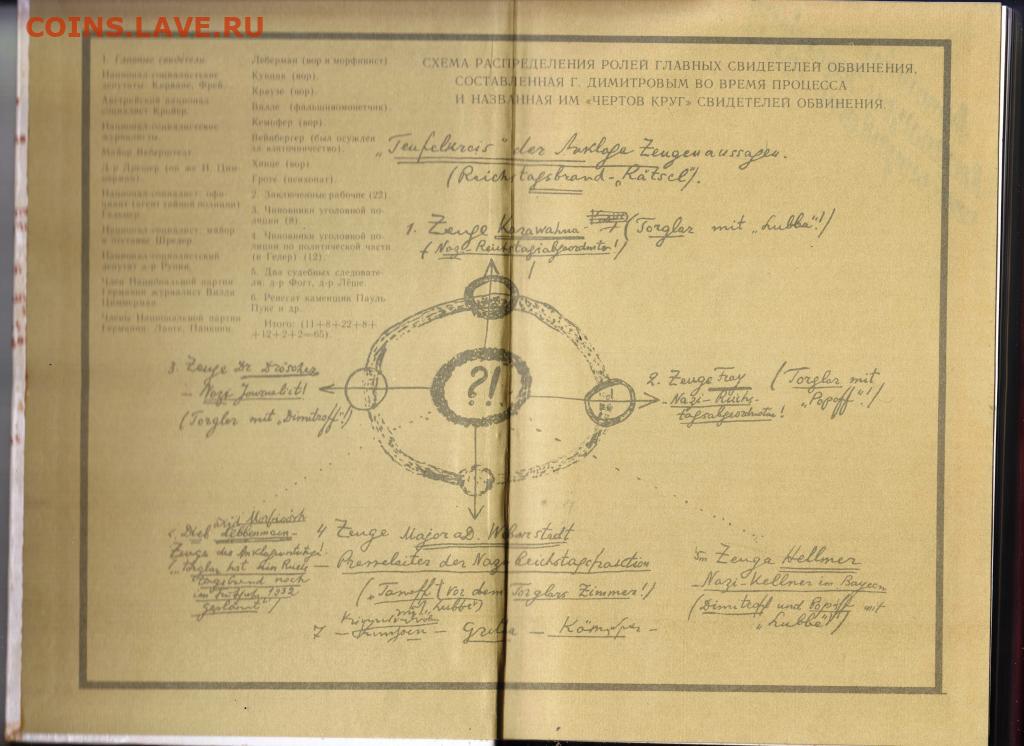 COINS.LAVE.RU
1. Главные свидетели.
Национал-социалистские
депутаты Карване, Фрей.
Австрийский национал-
социалист Кройер.
Национал-социалистские
журналисты.
Майор Веберштедт.
Д-р Дрешер (он же П. Цим-
Национал-социалист, офи-
циант (агент тайной полиции)
Гельмер.
Национал-социалист, майор
в отставке Шредер.
Национал-социалистский
депутат д-р Рупин.
Член Национальной партии
Германии журналист Вилли
Циммерман.
Члены Национальной партии
Германии:
Леберман (вор и морфинист)
Кунцак (вор).
Краузе (вор).
Вилле (фальшивомонетчик).
Кемпфер (вор).
Вейнбергер (был осужден
за взяточничество).
Хинце (вор)
Гроте (психопат).
2. Заключенные рабочие (22).
3. Чиновники уголовной по-
лиции (8).
4. Чиновники уголовной по-
лиции по политической части
(и Гелер) (12).
5. Два судебных следовате-
ля: д-р Фогт, д-р Лёше.
6. Ренегат каменщик Пауль
и др.
Итого: (11+8+22+8+
+12+2+2=65).
СХЕМА РАСПРЕДЕЛЕНИЯ РОЛЕЙ ГЛАВНЫХ СВИДЕТЕЛЕЙ ОБВИНЕНИЯ,
СОСТАВЛЕННАЯ Г. ДИМИТРОВЫМ ВО ВРЕМЯ ПРОЦЕССА
И НАЗВАННАЯ ИМ «ЧЕРТОВ КРУГ» СВИДЕТЕЛЕЙ ОБВИНЕНИЯ.
„Teufelkreis" der Anklage Zeugenaussagen.
(Reichstagsbrand-„Rätsel").
1. Zeuge Karawahna (Torgler mit „Lubbe"!)
(Nazi-Reichstagsabgeordneter!)
3. Zeuge Dr Dröscher
– Nazi Journalist!
(Torgler mit „Dimitroff"!)
?!
2. Zeuge Frey (Torgler mit
- Nazi-Reichs- „Popoff"!)
tagsabgeordneter!
und Morfinist
Dieb Lebbermann –
Zeuge des
„Torgler hat den Reichs-
tagsbrand noch
im 1932
geplant"!
4 Zeuge Major a.D. Weberstedt
– Presseleiter der Nazi Reichstagsfraktion
(„Taneff" vor dem Torglers Zimmer!)
mit Lubbe")
7 – – –
5. Zeuge Hellmer
– Nazi-Kellner in Bayern
(Dimitroff und Popoff mit
„Lubbe"!)